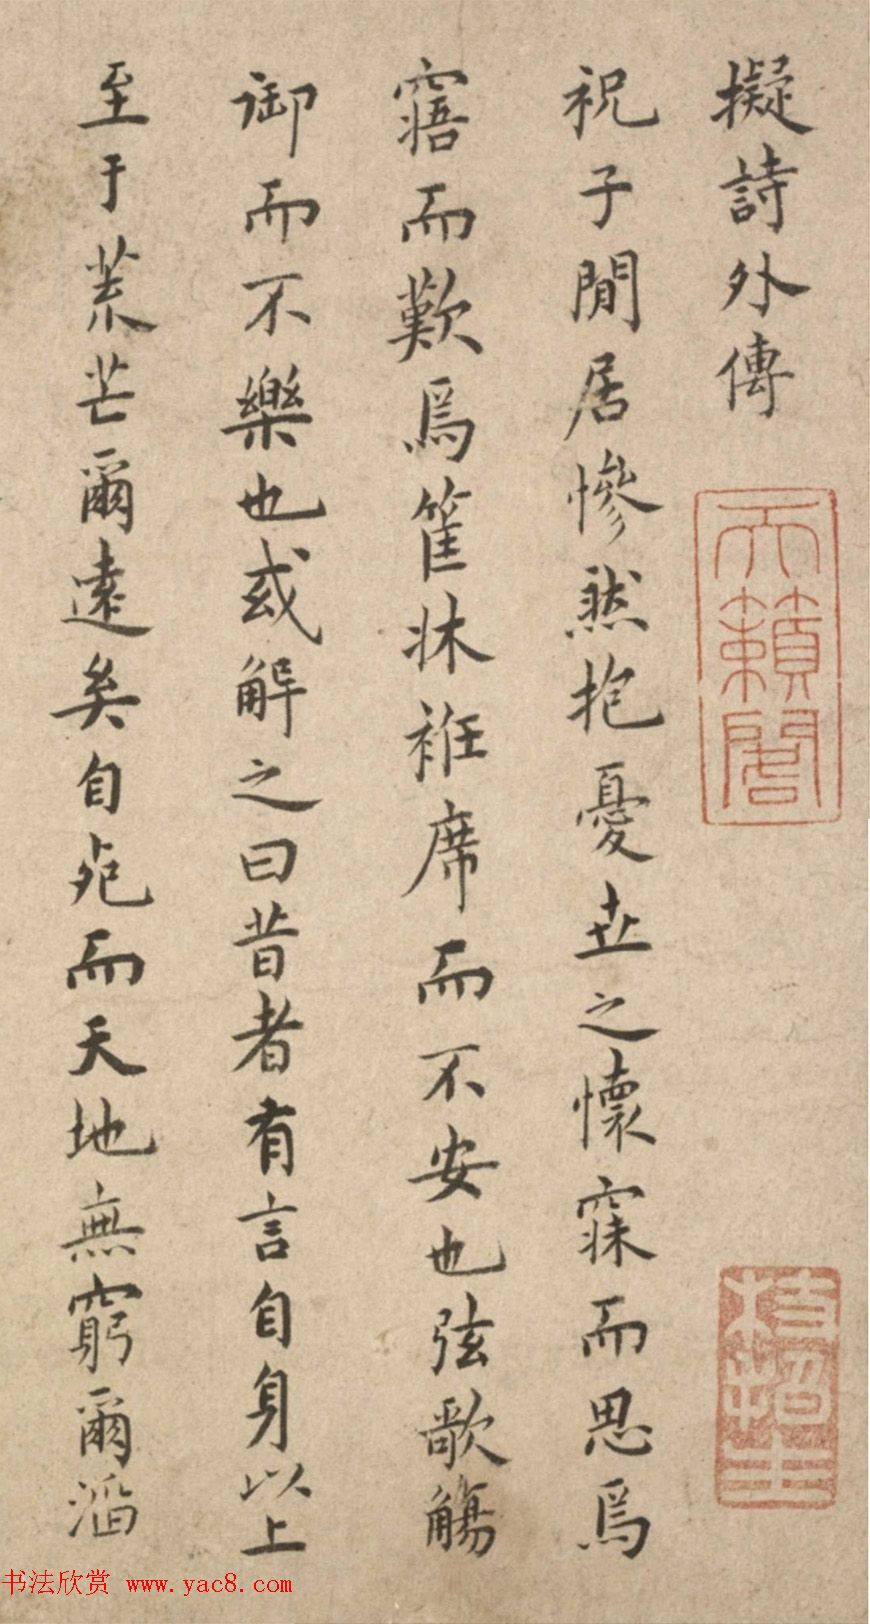 擬詩外傳
祝子閒居慘然抱憂世之懷寐而思焉
寤而歎焉筐牀袵席而不安也弦歌觴
御而不樂也或解之曰昔者有言自身以上
至于荒芒爾遠矣自死而天地無窮爾滔
天籟閣
枝指生
书法欣赏 www.yac8.com